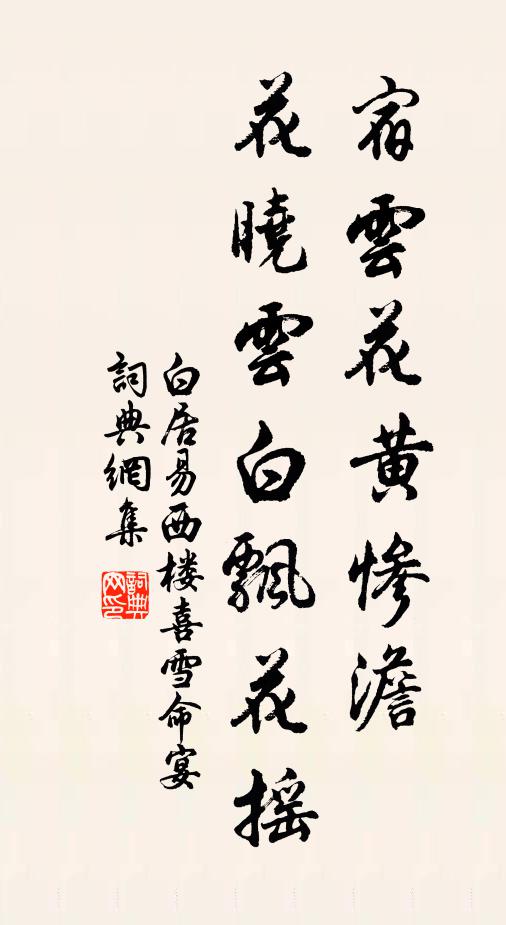 宿雲花黄慘澹
花曉雲白飄花摇
白居易西楼喜雪命宴
詞典網集
詞典网印